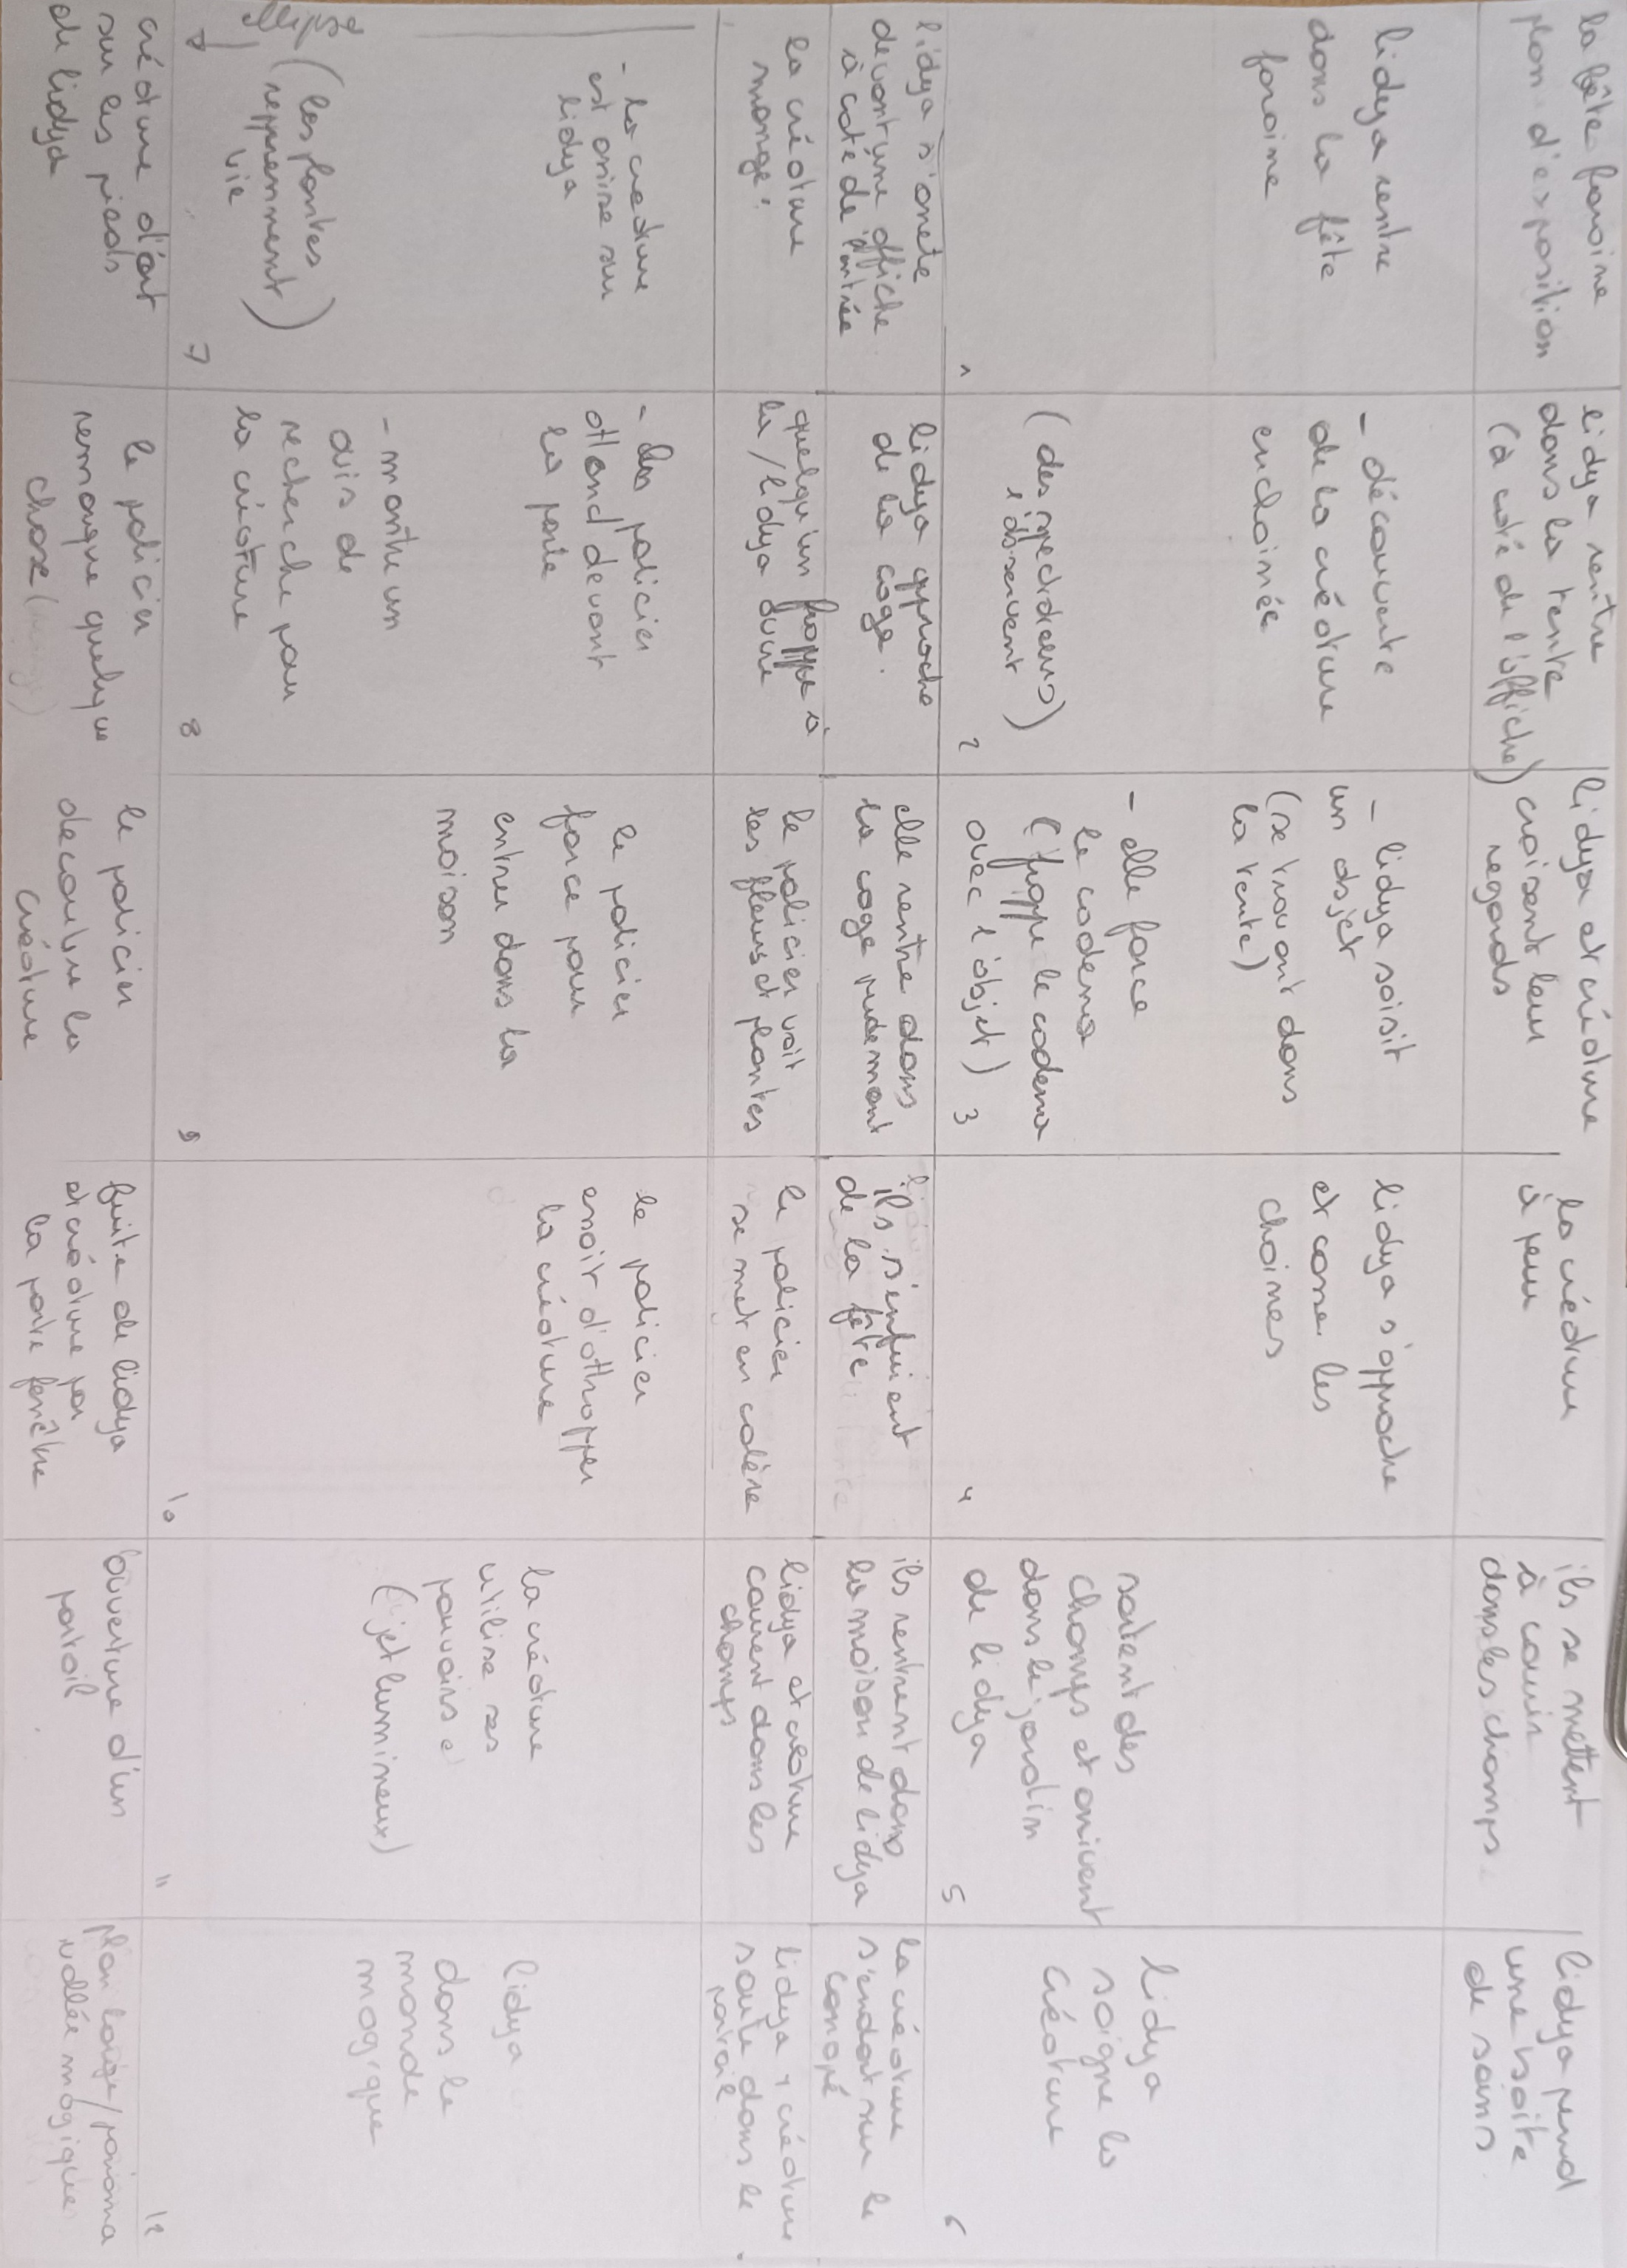 la fête foraine
plan d'exposition
lidya rentre
dans la fête
foraine
1
lidya s'arrete
devant une affiche
à coté de l'entrée
lidya rentre
dans la tente
(à coté de l'affiche)
- découverte
de la créature
enchainée
(des spectateurs
l'observent)
2
lidya approche
de la cage.
lidya et créature
croisent leur
regards
- lidya saisit
un objet
(se trouvant dans
la tente)
- elle force
le cadena
(frappe le cadena
avec l'objet)
3
elle rentre dans
la cage prudemment
la créature
à peur
lidya s'approche
et casse les
chaines
4
ils s'enfuient
de la fête
ils se mettent
à courir
dans les champs.
sortent des
champs et arrivent
dans le jardin
de lidya
5
ils rentrent dans
la maison de lidya
lidya prend
une boite
de soins.
lidya
soigne la
créature
6
la créature
s'endort sur le
canapé
la créature
mange.
- la creature
est assise sur
lidya
ellipse
(les plantes
reprennennt
vie)
7
créature d'ort
sur les pieds
de lidya
quelqu'un frappe à
la / lidya ouvre
- les policier
attand devant
la porte
- montre un
avis de
recherche pour
la créature
8
le policier
remarque quelque
chose
le policier voit
les fleurs et plantes
le policier
force pour
entrer dans la
maison
9
le policier
decouvre la
créature
le policier
se met en colère
le policier
essait d'attrapper
la créature
10
fuite de lidya
et créature par
la porte fenêtre
lidya et créature
courent dans les
champs
la créature
utilise ses
pouvoirs
(jet lumineux)
11
ouverture d'un
portail
lidya + créature
saute dans le
portail
lidya
dans le
monde
magique
12
plan large/panorama
vallée magique